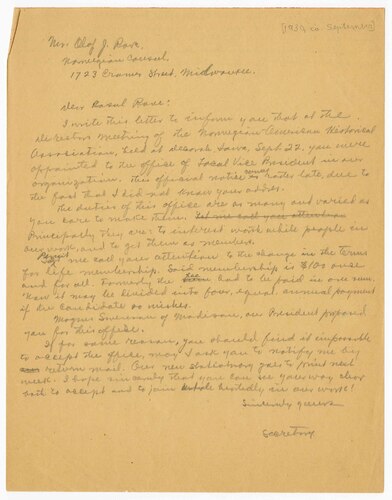 [1937 ca. September]
Mr. Olaf J. Rove,
Norwegian Consul,
1723 Cramer Street, Milwaukee.
Dear Consul Rove:
I write this letter to inform you that at the
Directors Meeting of the Norwegian American Historical
Association, held at Decorah Iowa, Sept 22, you were
appointed to the office of Local Vice President in our
organization. This official notice comes rather late, due to
the fact that I did not know your address.
The duties of this office are as many and varied as
you care to make them. Let me call your attention
Principally they are: to interest worth while people in
our work, and to get them as members.
Permit me call your attention to the change in the terms
for life membership. Said membership is $100 once
and for all. Formerly the fee had to be paid in one sum.
Now it may be divided into four equal annual payment
if the candidate so wishes.
Magnus Swenson of Madison, our President proposed
you for this office.
If for some reason, you should find it impossible
to accept the office, may I ask you to notify me by
return mail. Our new stationery goes to print next
week. I hope sincerely that you can see your way clear
both to accept and to join whole heartedly in our work!
Sincerely yours
Secretary